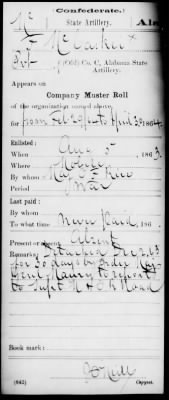 (Confederate.)
Mc State Artillery. Ala
F McCasker
Pvt, (Old) Co. C, Alabama State
Artillery.
Appears on
Company Muster Roll
of the organization named above,
for from Feb 29 to April 30, 1864.
Enlisted:
When Aug 5, 1863.
Where Mobile
By whom Maj
Period War
Last paid:
By whom
To what time Never Paid, 186
Present or absent Absent
Remarks: Detached
for 30 days by order Maj
Genl Maury to report
to Supt M & O R Road
Book mark:
(642) Copyist.